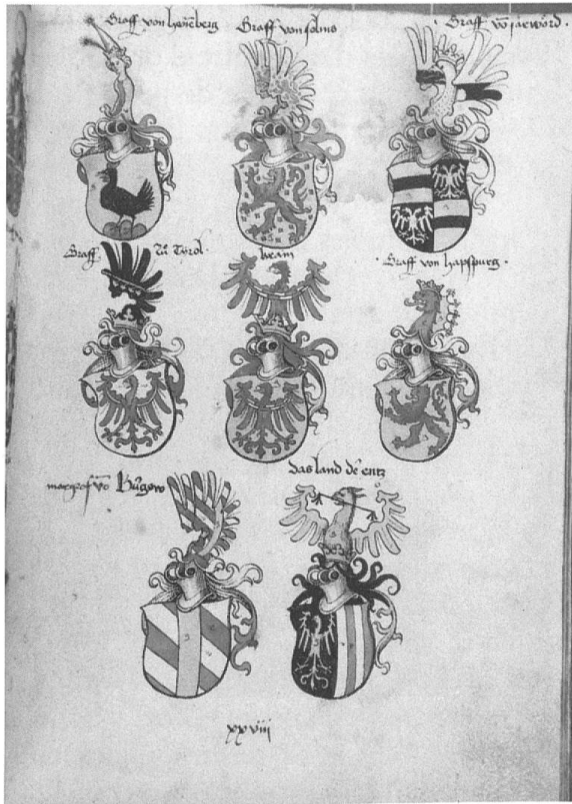 Graff von henēberg
Graff von solms
Graff vō sarword
Graff zů Tyrol
krain
Graff von hapspurg
margrof vō Bůrgow
das land dē entz
xxviii